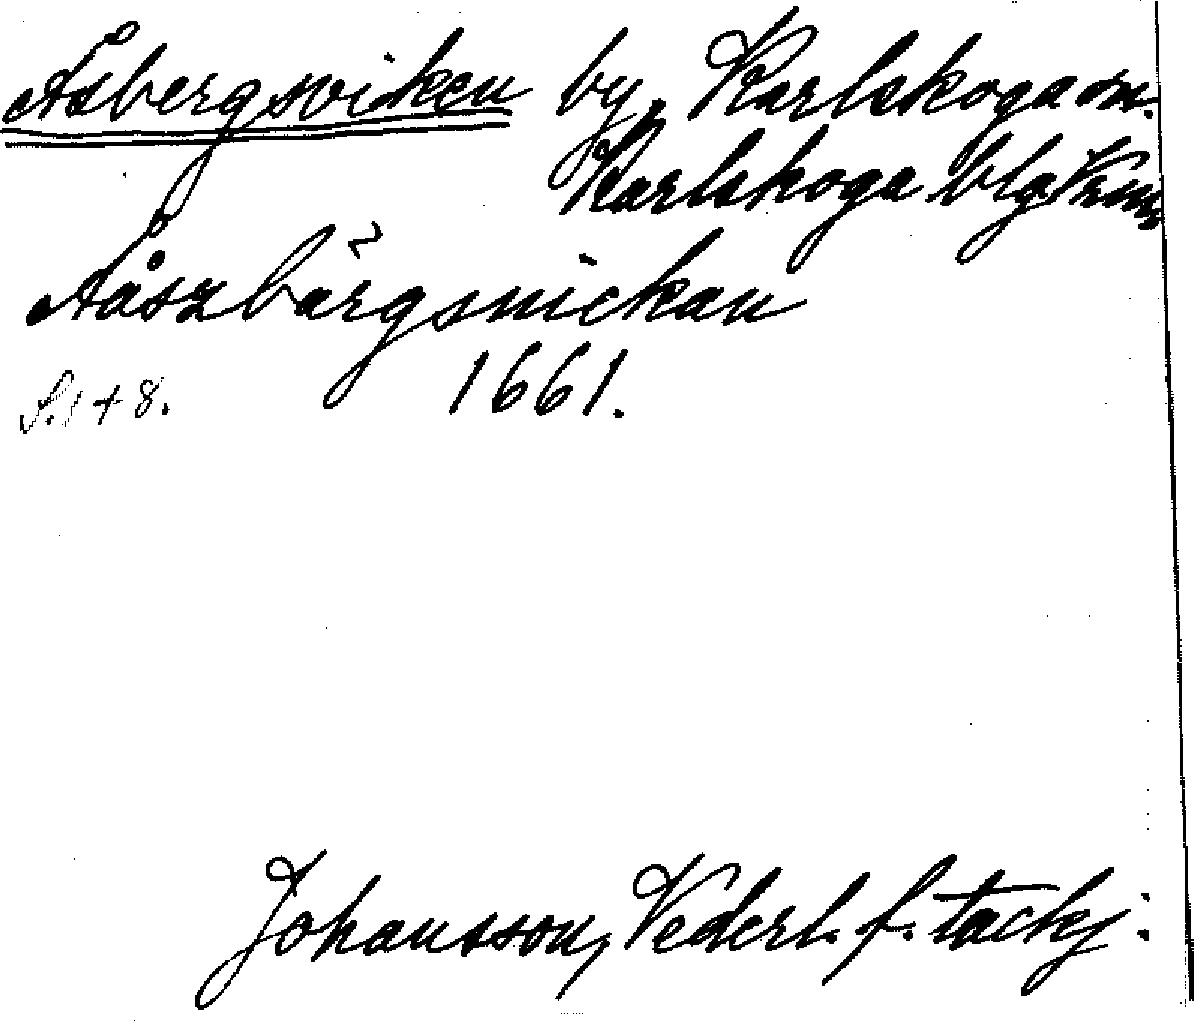 Åsbergsviken by, Karlskoga sn.
Karlskoga blg Vrml.
Aåszbärgswickan
1661.
S. 1 + 8.
Johansson, Vederl. f. tackj: